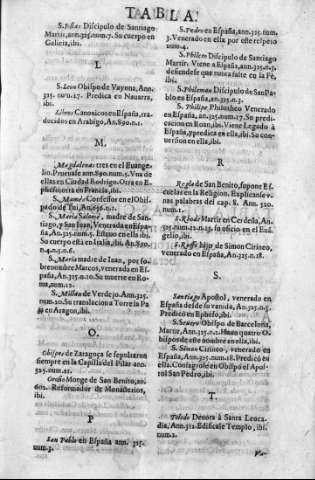 TABLA.
S. Pisas Discipulo de Santiago
Martir, ann.315.num.7. Su cuerpo en
Galicia, ibi.
L
S. Leon Obispo de Vayona, Ann.
325. num.17. Predica en Navarra,
ibi.
Libros Canonicos en España, tra-
ducidos en Arabigo, An.890.n.1.
M.
Magdalenas tres en el Evange-
lio. Pruevase ann.890.num.5. Una de
ellas en Ciudad Rodrigo. Otra en E-
phesso corria en Francia, ibi.
S. Mamès Confessor en el Obis-
pado de Tui, An.
S. Maria Salomè, madre de San-
tiago, y San Juan, Venerada en Espa-
ña, An.325.num.5. Estuvo en ella ibi.
Su cuerpo està en Italia, ibi. An.890.
n.4.
S. Maria madre de Juan, por so-
brenombre Marcos, venerada en Es-
paña, An.325.n.10. Su muerte en Ro-
ma, num.12.
S. Millàn de Verdejo. Ann.325.
num.10. Su translacion a Torre la Pa-
ja en Aragon, ibi.
O.
Obispos de Zaragoça se sepultaron
siempre en la Capilla del Pilar ann.
325. num.21.
Monge de San Benito, an.
Reformador de Monasterios,
ibi.
P
San Pablo en España ann. 325.
num.3.
S. Pedro en España, ann.325. num.
3. Venerado en ella por este respeto
num.4.
S. Philemon Discipulo de Santiago
Martir. Viene a España, ann.325.n.5.
defiendese que nunca falte en la Fè,
ibi.
S. Philemon Discipulo de San Pa-
blo en España, ann.325.n.3.
S. Philipe Philotheo Venerado
en España, an.325.num.17. Su pre-
dicacion en Roan, ibi. Viene Legado à
España, y predica en ella, ibi. Su con-
version en ella, ibi.
R
Regla de San Benito, supone Es-
cuelas en la Religion. Explicanse v-
nas palabras del cap. 8. Ann. 320.
num.1.
S. Rhode Martir en Cerdeña, An.
325.num.n.13. su oficio en el Evan-
gelio, ibi.
S. Ruffo hijo de Simon Cirineo,
venerado en España, An.325.n.18.
S.
Santiago Apostol, venerado en
España desde su venida, An.325.n.5.
Predicò en Epheso, ibi.
S. Severo Obispo de Barcelona,
Martir, An.325.n.2. Huvo quatro O-
bispos de este nombre en ella, ibi.
S. Simon Cirineo, venerado en
España, Ann.325.num.18. Predicò en
ella. Consagròle en Obispo el Apos-
tol San Pedro, ibi.
T.
Toledo Devota à Santa Leoca-
dia, Ann.312. Edificale Templo, ibi.
num.2.